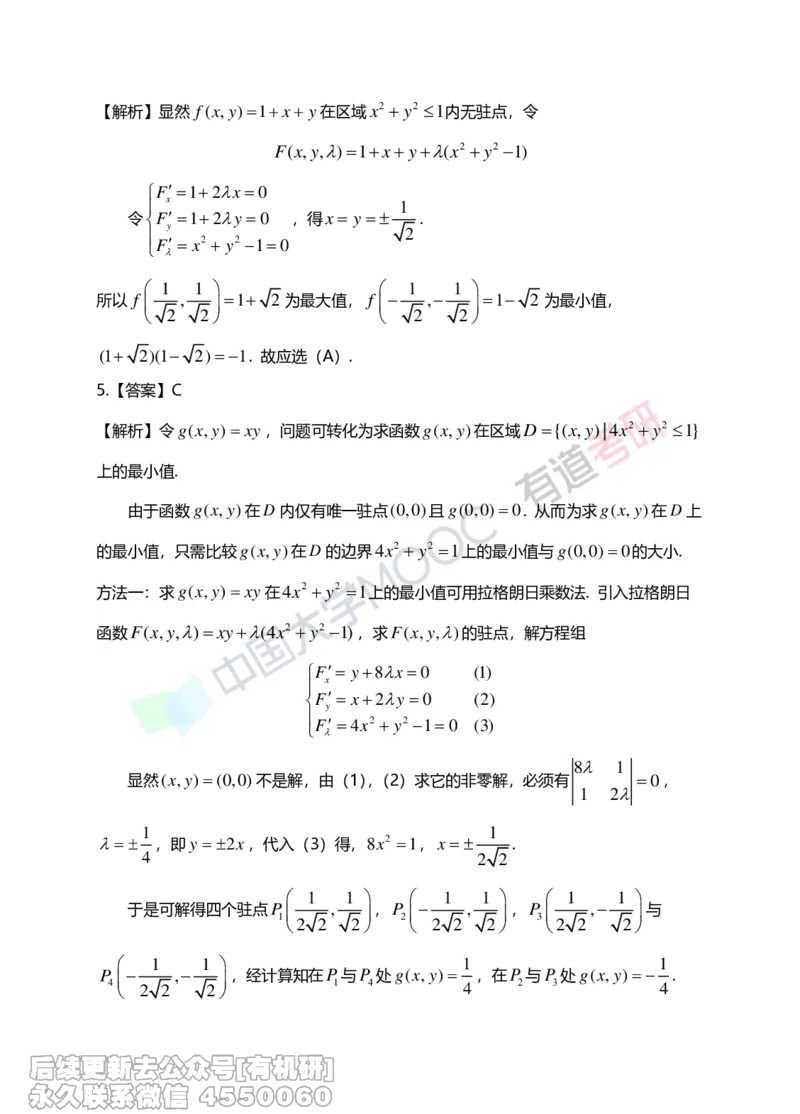 【解析】显然 f(x,y)=1+x+y在区域x²+y²≤1内无驻点，令
F(x,y,λ)=1+x+y+λ(x²+y²−1)
F′x=1+2λx=0
令 F′y=1+2λy=0 ，得x=y=±1/√2.
F′λ=x²+y²−1=0
所以 f(1/√2,1/√2)=1+√2为最大值，f(−1/√2,−1/√2)=1−√2为最小值，
(1+√2)(1−√2)=−1. 故应选（A）.
5.【答案】C
【解析】令g(x,y)=xy，问题可转化为求函数g(x,y)在区域D={(x,y)|4x²+y²≤1}
上的最小值.
由于函数g(x,y)在D内仅有唯一驻点(0,0)且g(0,0)=0. 从而为求g(x,y)在D上
的最小值，只需比较g(x,y)在D的边界4x²+y²=1上的最小值与g(0,0)=0的大小.
方法一：求g(x,y)=xy在4x²+y²=1上的最小值可用拉格朗日乘数法. 引入拉格朗日
函数F(x,y,λ)=xy+λ(4x²+y²−1)，求F(x,y,λ)的驻点，解方程组
F′x=y+8λx=0 (1)
F′y=x+2λy=0 (2)
F′λ=4x²+y²−1=0 (3)
显然(x,y)=(0,0)不是解，由（1），（2）求它的非零解，必须有|8λ 1; 1 2λ|=0，
λ=±1/4，即y=±2x，代入（3）得，8x²=1，x=±1/(2√2).
于是可解得四个驻点P₁(1/(2√2),1/√2)，P₂(−1/(2√2),1/√2)，P₃(1/(2√2),−1/√2)与
P₄(−1/(2√2),−1/√2)，经计算知在P₁与P₄处g(x,y)=1/4，在P₂与P₃处g(x,y)=−1/4.
中国大学MOOC 有道考研
后续更新去公众号[有机研]
永久联系微信 4550060